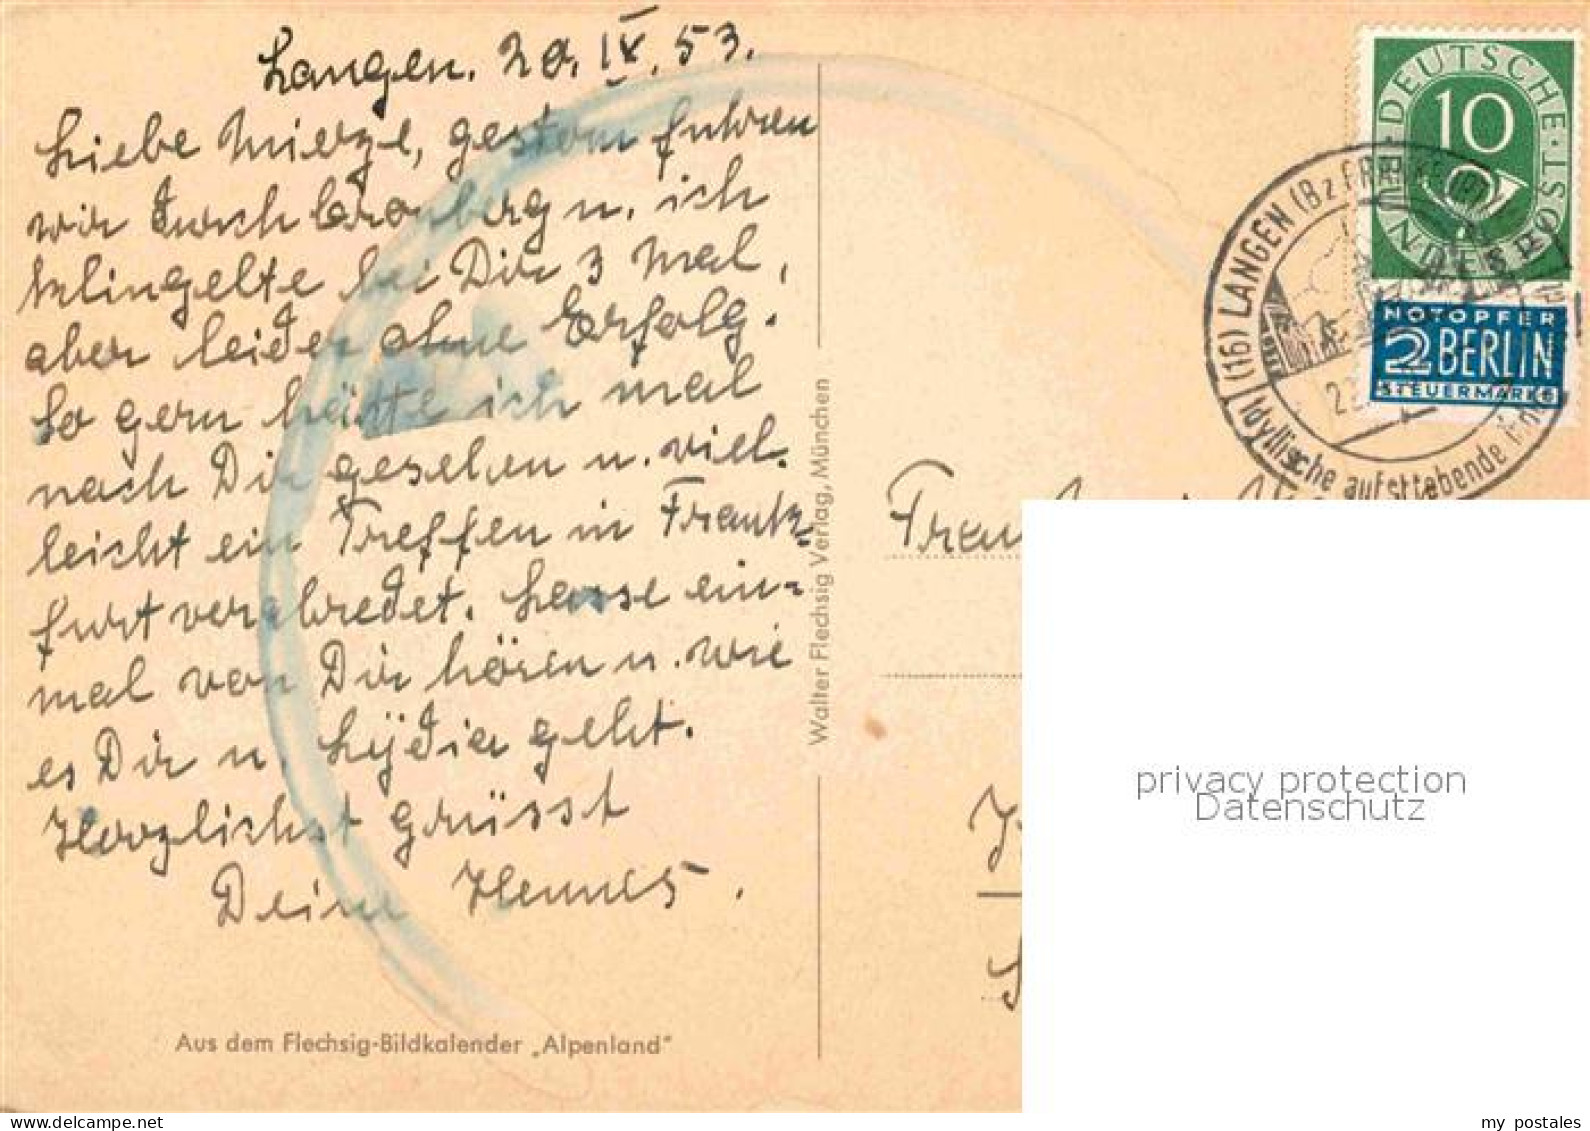 Langen. 20. IX. 53.
Liebe Mierze, gestern fuhren
wir durch Cronberg u. ich
klingelte bei Dir 3 mal,
aber leider ohne Erfolg.
So gern hätte ich mal
nach Dir gesehen u. viel-
leicht ein Treffen in Frank-
furt verabredet. Lasse ein-
mal von Dir hören u. wie
es Dir u. Lydia geht.
Herzlichst grüsst
Deine
Aus dem Flechsig-Bildkalender „Alpenland"
Walter Flechsig Verlag, München
DEUTSCHE BUNDESPOST
10
NOTOPFER
2 BERLIN
STEUERMARKE
(16) LANGEN (Bz FRANKFURT)
Idyllische aufstrebende
privacy protection
Datenschutz
my postales